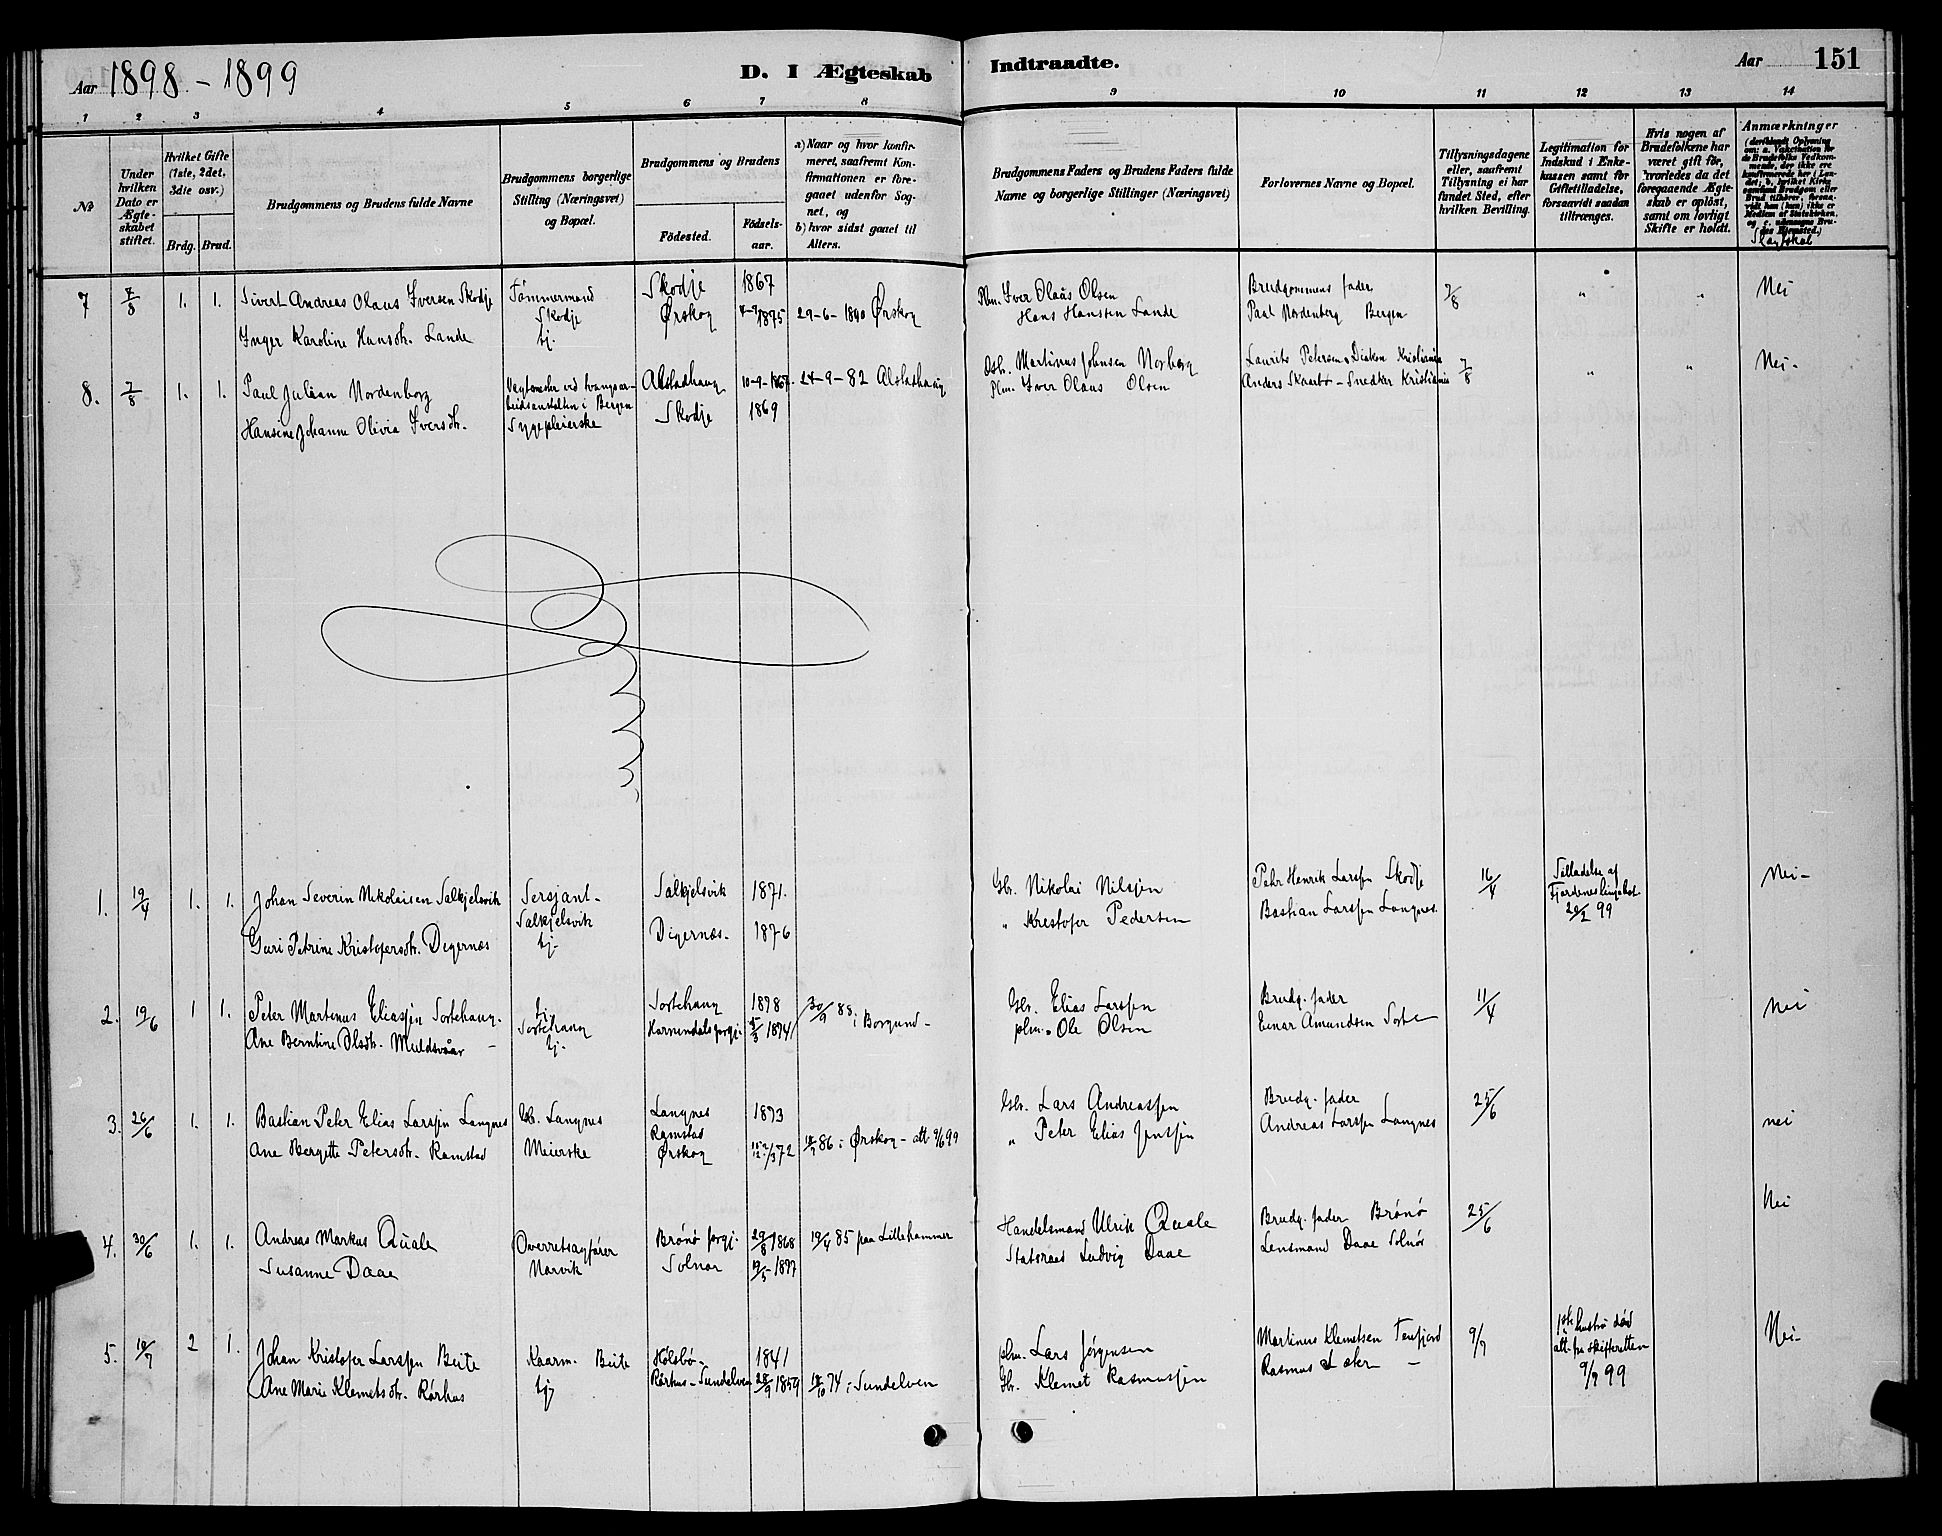 Aar 1898 - 1899
D. I Ægteskab Indtraadte.
Aar 151
1 2 3 4 5 6 7 8 9 10 11 12 13 14
№
Under hvilken Dato er Ægteskabet stiftet.
Hvilket Gifte (1ste, 2det, 3die osv.)
Brdg. Brud.
Brudgommens og Brudens fulde Navne
Brudgommens borgerlige Stilling (Næringsvei) og Bopæl.
Brudgommens og Brudens
Födested.
Födsels-aar.
a) Naar og hvor konfirmeret, saafremt Konfirmationen er foregaaet udenfor Sognet, og
b) hvor sidst gaaet til Alters.
Brudgommens Faders og Brudens Faders fulde Navne og borgerlige Stillinger (Næringsvei)
Forlovernes Navne og Bopæl.
Tillysningsdagene eller, saafremt Tillysning ei har fundet Sted, efter hvilken Bevilling.
Legitimation for Indskud i Enkekassen samt for Giftetilladelse, forsaavidt saadan tiltrænges.
Hvis nogen af Brudefolkene har været gift för, hvorledes da det foregaaende Ægteskab er oplöst, samt om lovligt Skifte er holdt.
Anmærkninger
7 7/8 1. 1. Sivert Andreas Olaus Iversen Skodje Tömmermand Skodje 1867 Pbm. Iver Olaus Olsen Brudgommens fader 7/8 " " Nei
Inger Karoline Hansdtr. Lande hj. Skodje Ørskog 1875 29-6-1890 Ørskog Hans Hansen Lande Paul Nordenborg Bergen
8. 7/8 1. 1. Paul Julian Nordenborg Alstadhaug 10-9-1867 24-9-82 Alstadhaug Martinus Johnsen Norberg Laurits Petersen Diakon Kristiania 7/8 " " Nei-
Hansine Johanne Olivia Iversdtr. Sygepleierske Skodje 1869 Pbm. Iver Olaus Olsen Anders Skaarbø - Snedker Kristiania
1. 19/4 1. 1. Johan Severin Nikolaisen Salkjelsvik Sersjant - Salkjelsvik Salkjelsvik 1871. Gbr. Nikolai Nilssen Petr Henrik Larssen Skodje 16/4 Tilladelse af Nei-
Guri Petrine Kristofersdtr. Digernæs hj- Digernæs - 1876 " Kristofer Pedersen Bastian Larssen Langnes. 99
2. 19/6 1 1. Peter Martinus Eliassen Sortehaug. hj. Sortehaug Sortehaug 1878 30/9 88 i Borgund - Gbr. Elias Larssen Brudg. fader 11/4 nei
Ane Berntine Olsdtr. Muldsvaar - hj. 1874 plm. Ole Olsen Einar Amundsen
3. 26/6 1. 1. Bastian Peter Elias Larssen Langnes Gb. Langnes Langnes 1873 Gbr. Lars Andreassen Brudg. fader 25/6 nei
Ane Bergitte Petersdtr. Ramstad Meierske Ramstad Ørskog 72 86 i Ørskog - att 9/6 99 " Peter Elias Jenssen Andreas Larssen Langnes
4. 30/6 1. 1. Andreas Markus Quale Overretsagfører Brönö prgj. 29/8 1868 19/4 85 paa Lillehammer Handelsmand Ulrik Quale Brudg. fader Brönö 25/6 Nei
Susanne Daae Narvik Solnør 19/5 1877 Statsraad Ludvig Daae Lensmand Daae Solnör
5. 10/7 2 1. Johan Kristofer Larssen Beite Kaarm. Beite 1841 plm. Lars Jörgensen Martinus Klemetsen Tenfjord 9/7 1ste hustru död Nei-
Ane Marie Klemetsdtr. Rörhus hj Rörhus - Sundelven 28/9 1859 74 i Sundelven Gbr. Klemet Rasmussen Rasmus att. fra skifteretten 9/7 99